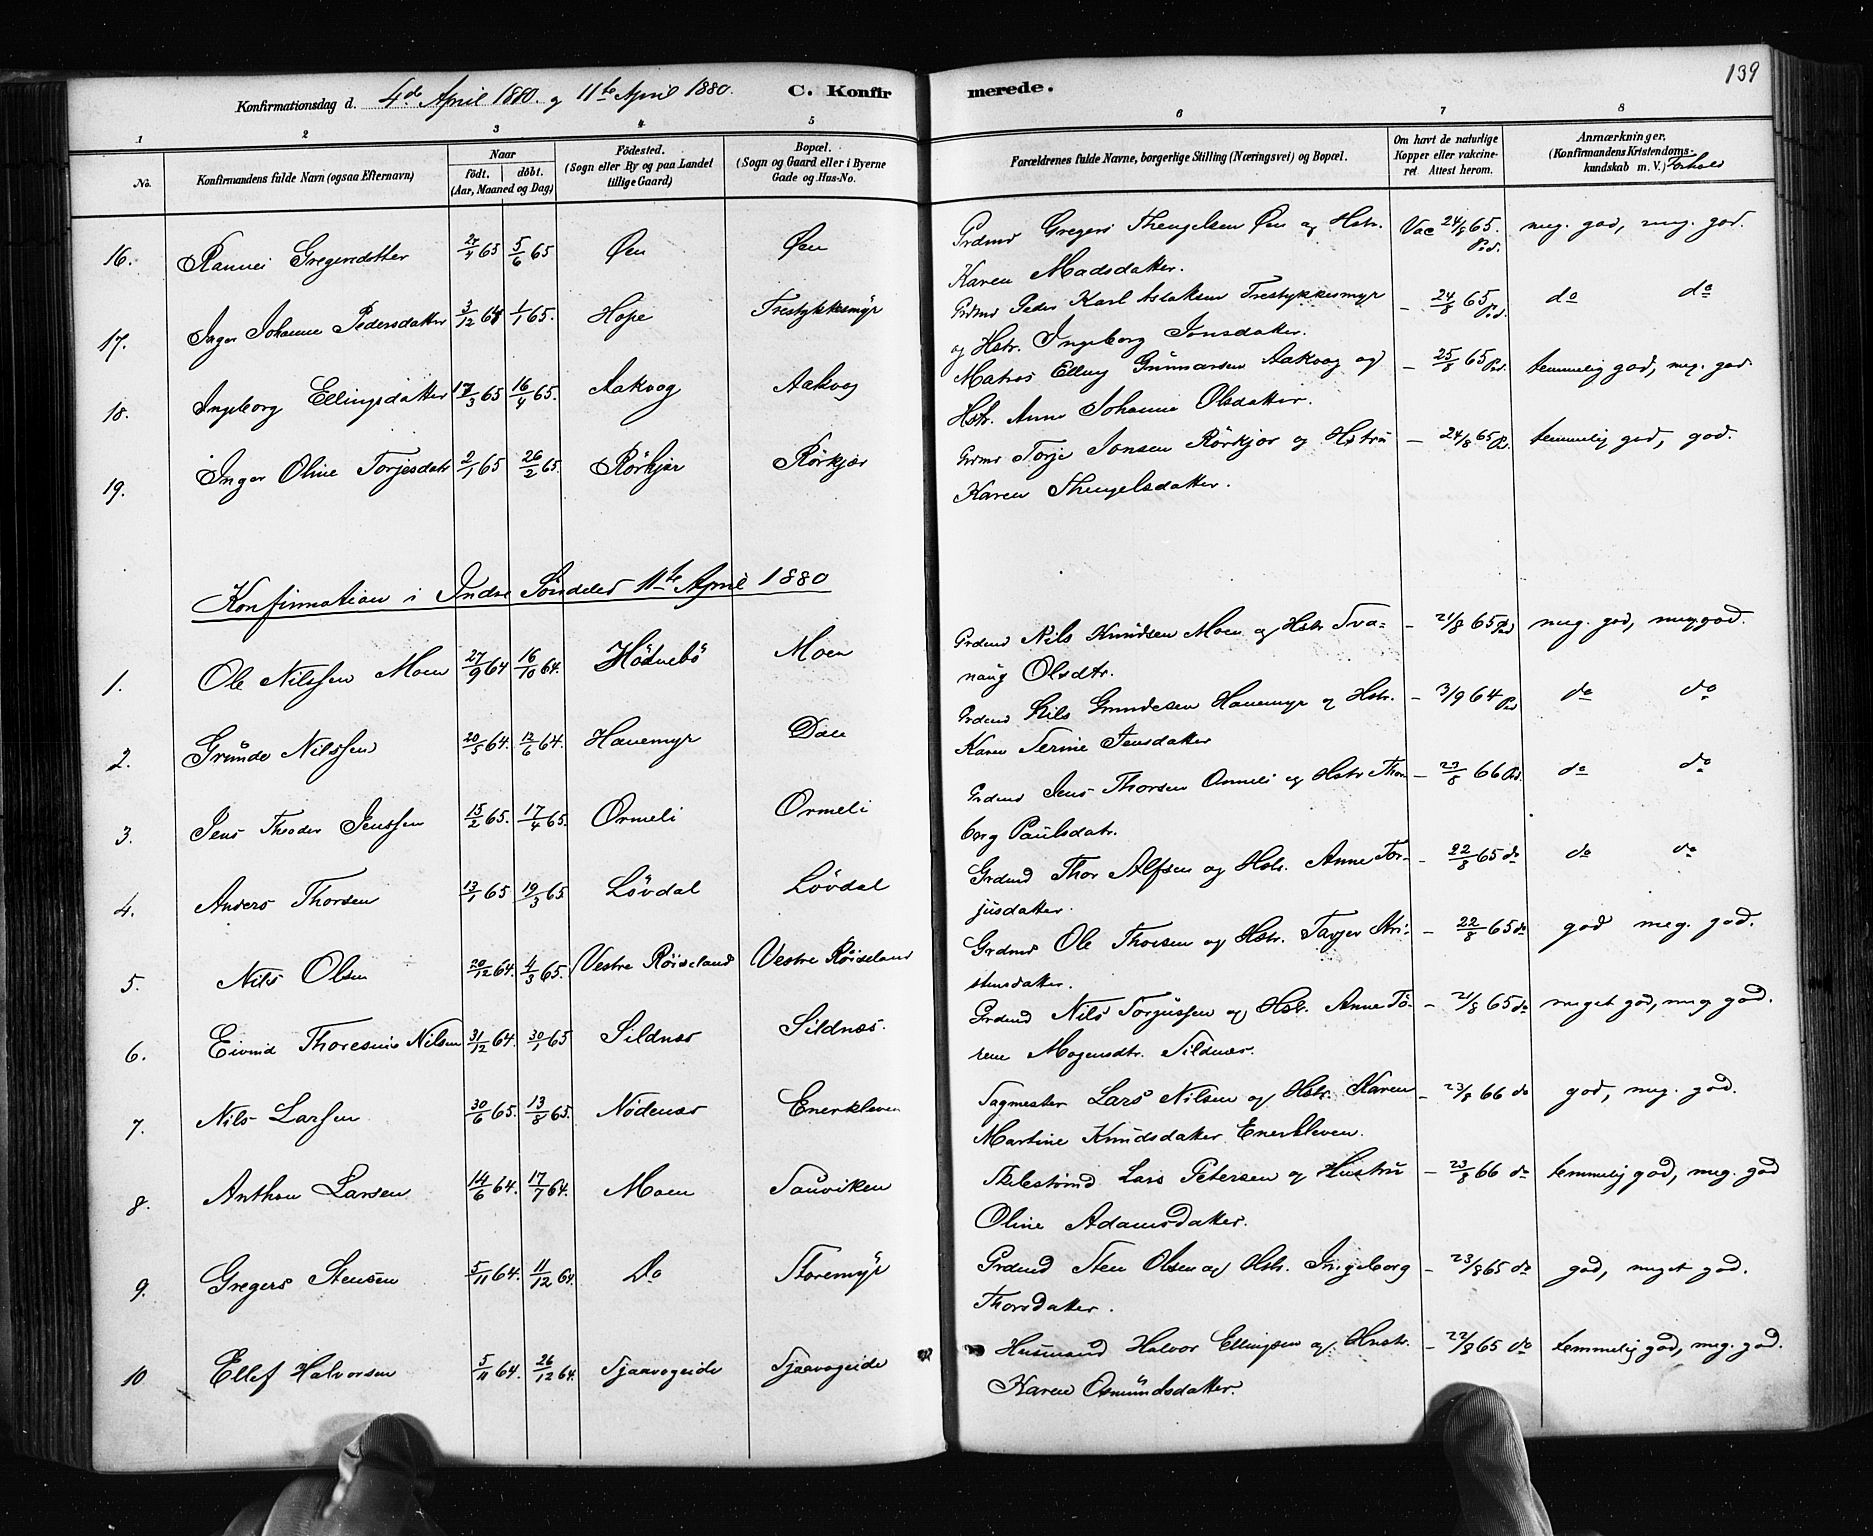 139
Konfirmationsdag d. 4de April 1880. og 11te April 1880. C. Konfirmerede.
1 2 3 4 5 6 7 8
No. Konfirmandens fulde Navn (ogsaa Efternavn) Naar födt. döbt. (Aar, Maaned og Dag) Födested. (Sogn eller By og paa Landet tillige Gaard) Bopæl. (Sogn og Gaard eller i Byerne Gade og Hus-No. Forældrenes fulde Navne, borgerlige Stilling (Næringsvei) og Bopæl. Om havt de naturlige Kopper eller vakcineret Attest herom. Anmærkninger. (Konfirmandens Kristendomskundskab m. V.) Forhold
16. Gregersdatter 65 5/6 65 Øen Øen Grdmd Gregers Thengelsen Øen og Hstr. Vac 24/8 65. Pd. meg. god, meg. god.
Karen Madsdatter.
17. Inger Johanne Pedersdatter 3/12 64 1/1 65. Hope Trestykkesmyr Grdmd Peder Karl Aslaksen Trestykkesmyr – 24/8 65 Pd. do do
og Hstr. Ingeborg Jonsdatter.
18. Ingeborg Ellingsdatter 17/3 65 16/4 65. Aakvog Aakvog Matros Elling Gunnarsen Aakvog og – 25/8 65 Pd. temmelig god, meg. god.
Hstr. Anne Johanne Olsdatter.
19. Inger Oline Torjesdatr 2/1 65 26/2 65. Rörkjær Rörkjær Grdmd Torje Jonsen Rörkjær og Hstru – 24/8 65 P. temmelig god, god.
Karen Thengelsdatter.
Konfirmation i Indre Söndeled 11te April 1880
1. Ole Nilssen Moen 27/9 64 16/10 64. Hödnebö Moen Grdmd Nils Knudsen Moen og Hstr Sva= – 21/8 65 Pd meg. god, meg god.
naug Olsdtr.
2. Grunde Nilssen 20/5 64. 12/6 64. Hauemyr Dale Grdmd Nils Grundesen Hauemyr og Hstr. – 3/9 64 Pd do do
Karen Serine Jensdatter
3. Jens Theodor Jenssen 15/2 65. 17/4 65. Ormeli Ormeli Grdmd Jens Thorsen Ormeli og Hstr Thor- – 23/8 66 Pd. do do
borg Paulsdatr.
4. Anders Thorsen 13/1 65 19/3 65. Lövdal Lövdal Grdmd Thor Alfsen og Hstr. Anne Tor- – 22/8 65 do do do
jusdatter.
5. Nils Olsen 20/12 64. 4/3 65. Vestre Röiseland Vestre Röiseland Grdmd Ole Thorsen og Hstr. Tarjer Kri- – 22/8 65 do god meg. god.
stensdatter.
6. Eivind Thoresius Nilsen 31/12 64. 30/1 65 Sildnæs Sildnæs. Grdmd Nils Torjussen og Hstr. Anne To- – 21/8 65 do meget god, meg god.
rene Mogensdtr. Sildnæs.
7. Nils Larsen 30/6 65. 13/8 65. Nödenæs Enerkleven Sagmester Lars Nilsen og Hstr. Karen – 23/8 66 do god, meg. god.
Martine Knudsdatter Enerkleven.
8. Anthon Larsen 14/6 64. 17/7 64. Moen Sauviken Lars Petersen og Hustru – 23/8 66 do temmelig god, meg. god
Oline Adamsdatter.
9. Gregers Stensen 5/11 64. 11/12 64. Do Storemyr Grdmd Sten Olsen og Hstr. Ingeborg – 23/8 65 do god, meget god.
Thorsdatter.
10 Ellef Halvorsen 5/11 64. 26/12 64. Sjaavogeide Sjaavogeide Husmand Halvor Ellingsen og Hustr. – 22/8 65 do temmelig god, meg. god.
Karen Osmundsdatter.